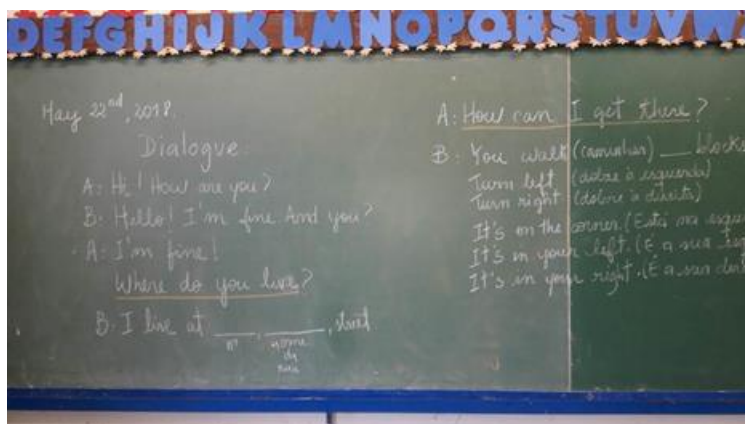 DEFGHIJKLMNOPQRSTUVW
May 22nd, 2018.
Dialogue:
A: Hi! How are you?
B: Hello! I'm fine. And you?
A: I'm fine!
Where do you live?
B: I live at ____, ____, street.
nº
nome
da
rua
A: How can I get there?
B: You walk (caminhar) ___ blocks
Turn left (dobre à esquerda)
Turn right (dobre à direita)
It's on the corner. (Está na esqui
It's in your left. (É a sua
It's in your right. (É a sua direi